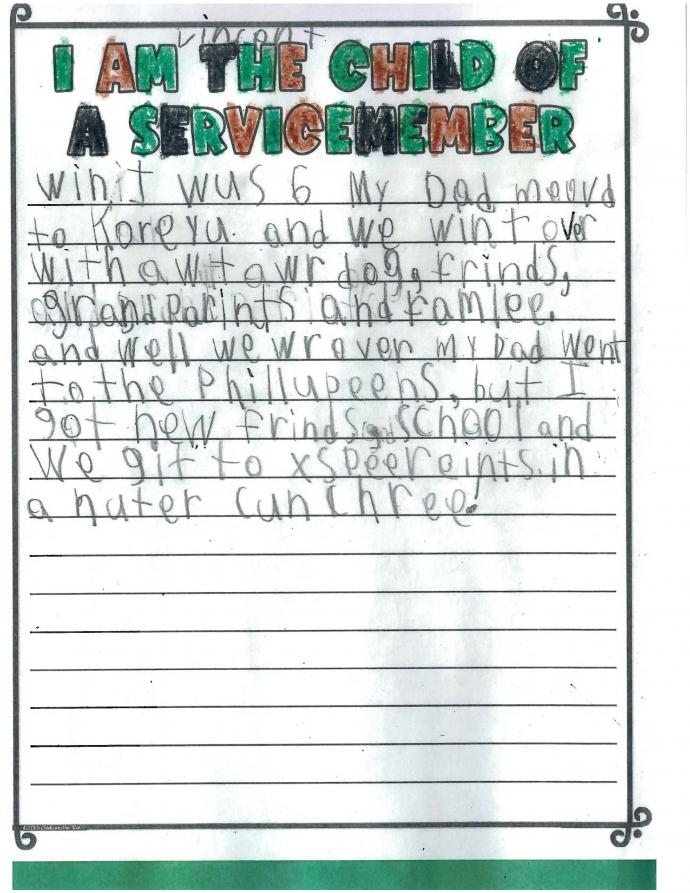 vincent
I AM THE CHILD OF
A SERVICEMEMBER
win I wus 6 My Dad moovd
to Koreyu and we wint over
with awt awr dog, frinds,
grandparints and famlee.
and well we wr over my Dad went
to the Phillupeens, but I
got new frinds, school and
we git to xspeereints in
a nuter cunchree!